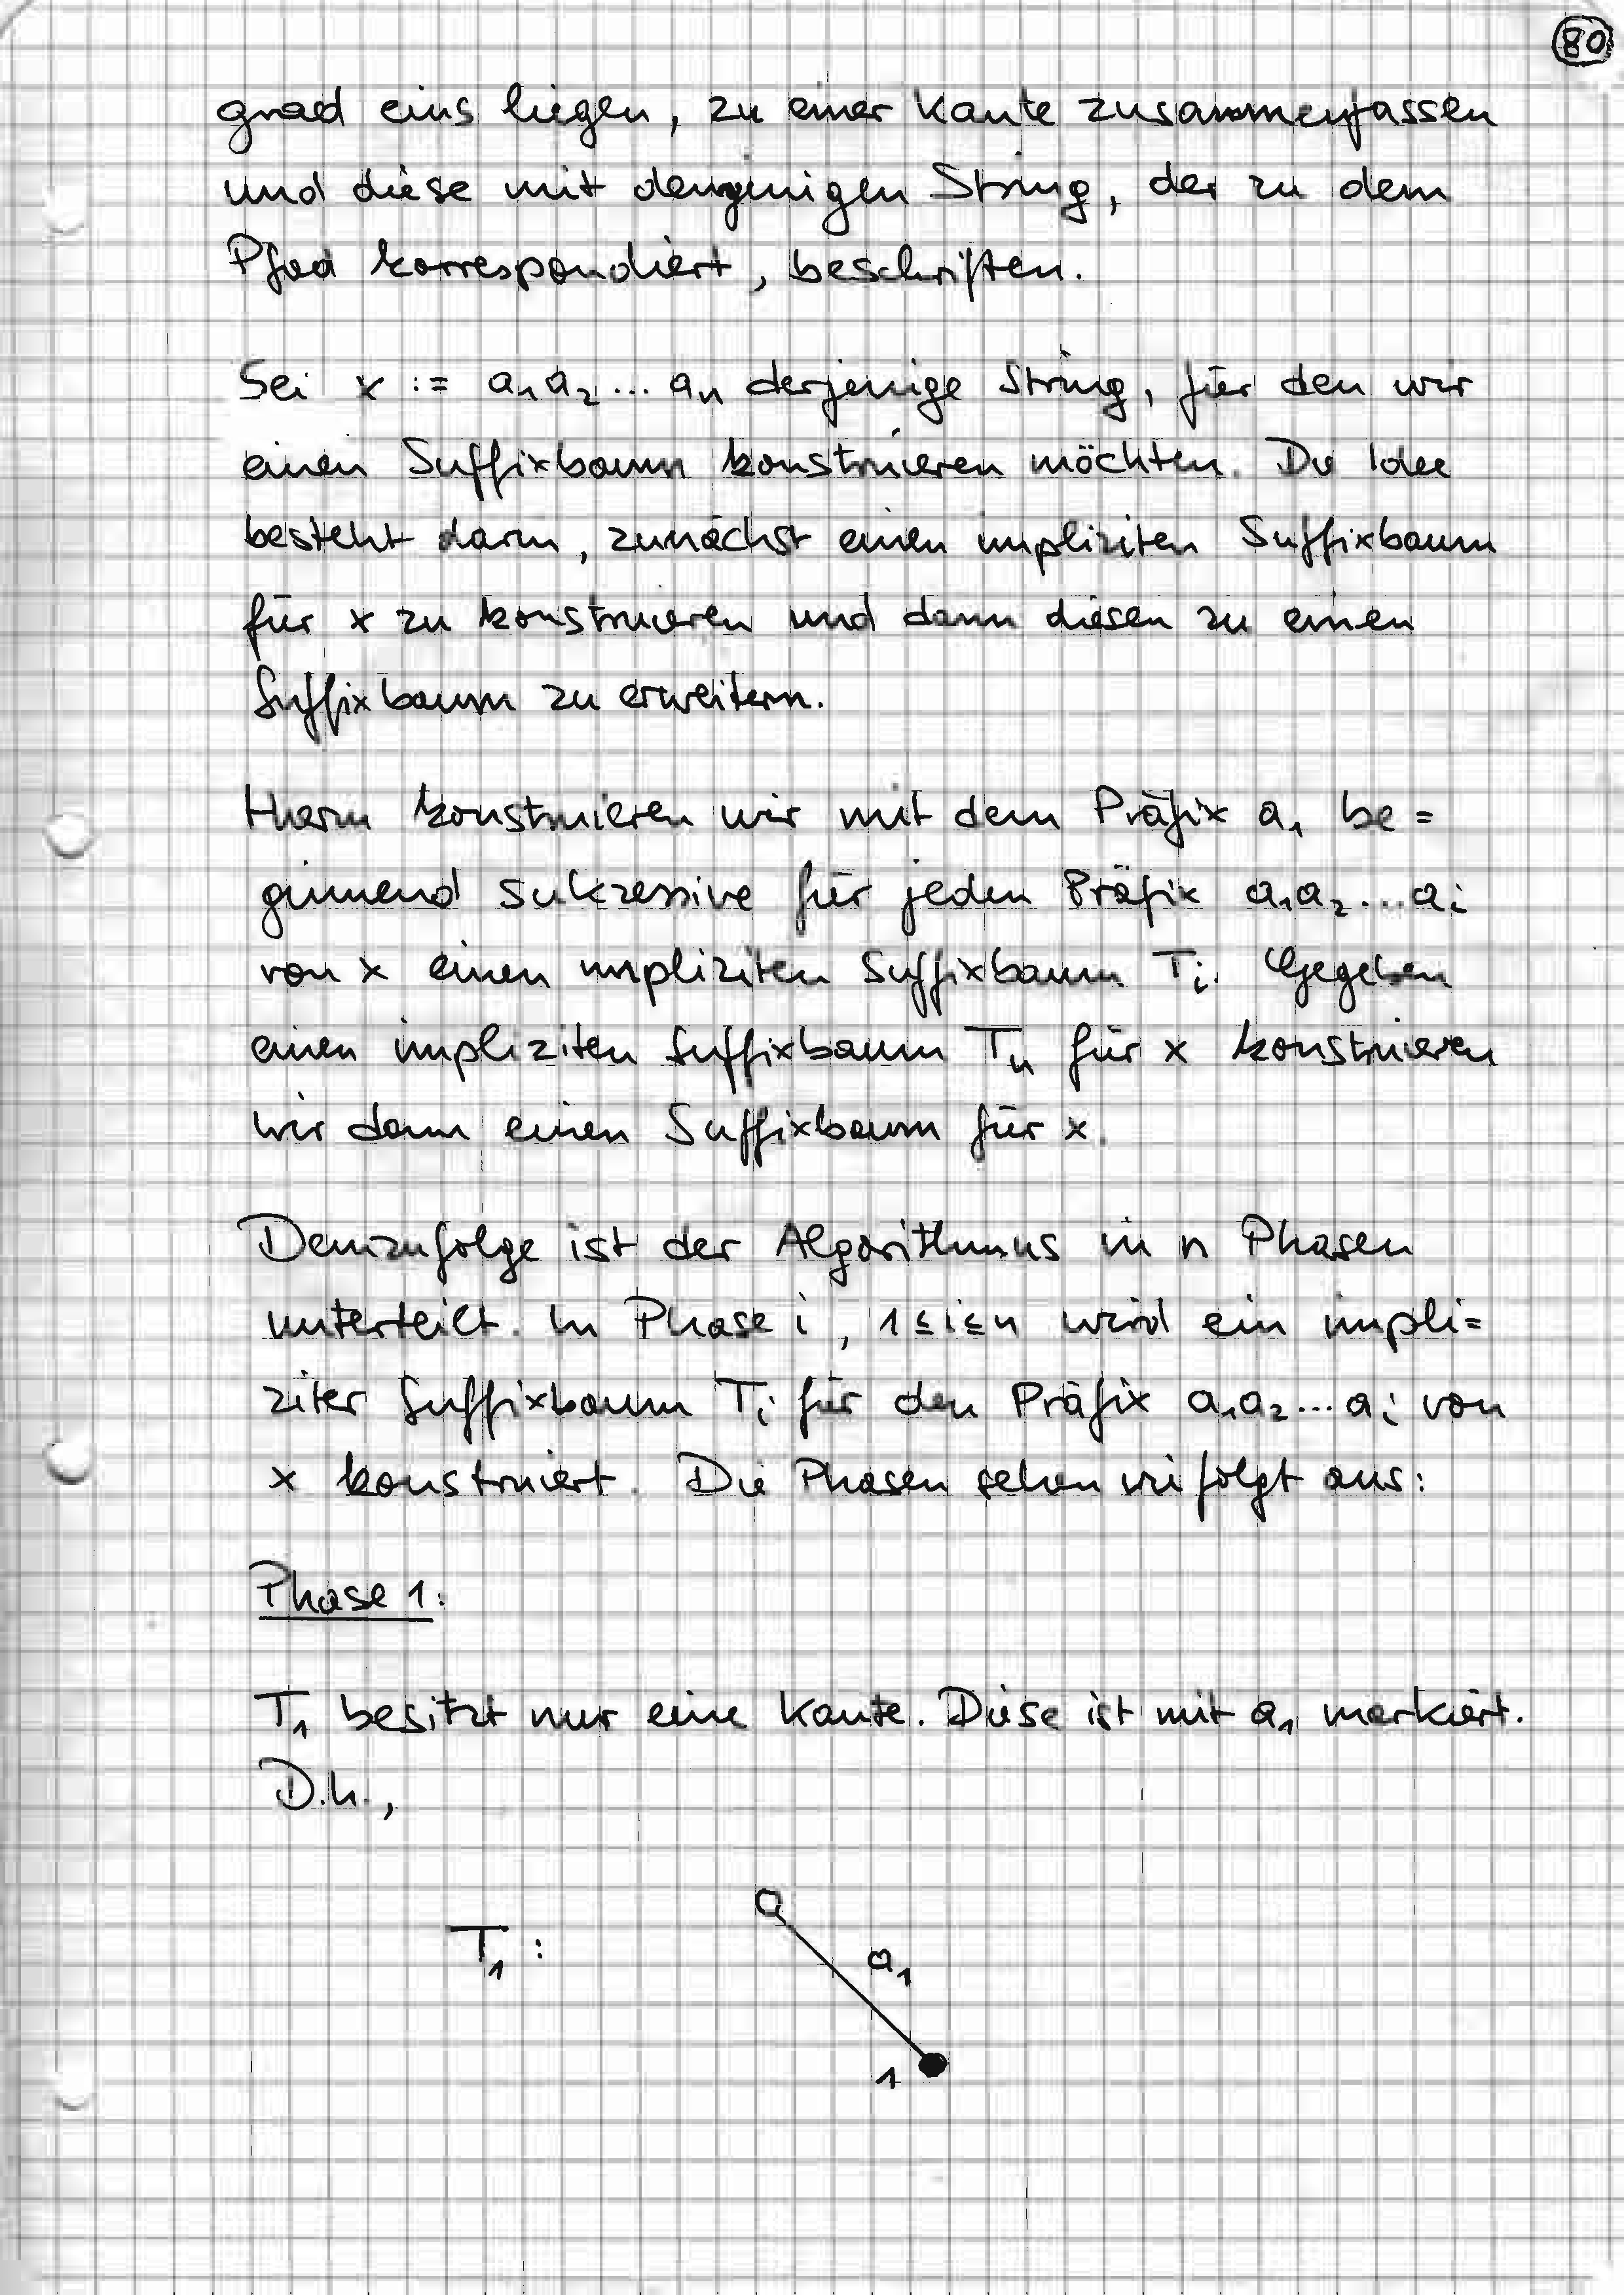 80
grad eins liegen, zu einer Kante zusammenfassen
und diese mit demjenigen String, der zu dem
Pfad korrespondiert, beschriften.
Sei x := a₁a₂...aₙ derjenige String, für den wir
einen Suffixbaum konstruieren möchten. Die Idee
besteht darin, zunächst einen impliziten Suffixbaum
für x zu konstruieren und dann diesen zu einen
Suffixbaum zu erweitern.
Hierin konstruieren wir mit dem Präfix a₁ be=
ginnend sukzessive für jeden Präfix a₁a₂...aᵢ
von x einen impliziten Suffixbaum Tᵢ. Gegeben
einen impliziten Suffixbaum Tₙ für x konstruieren
wir dann einen Suffixbaum für x.
Demzufolge ist der Algorithmus in n Phasen
unterteilt. In Phase i, 1≤i≤n wird ein impli=
ziter Suffixbaum Tᵢ für den Präfix a₁a₂...aᵢ von
x konstruiert. Die Phasen sehen wie folgt aus:
Phase 1:
T₁ besitzt nur eine Kante. Diese ist mit a₁ markiert.
D.h.,
T₁:
a₁
1